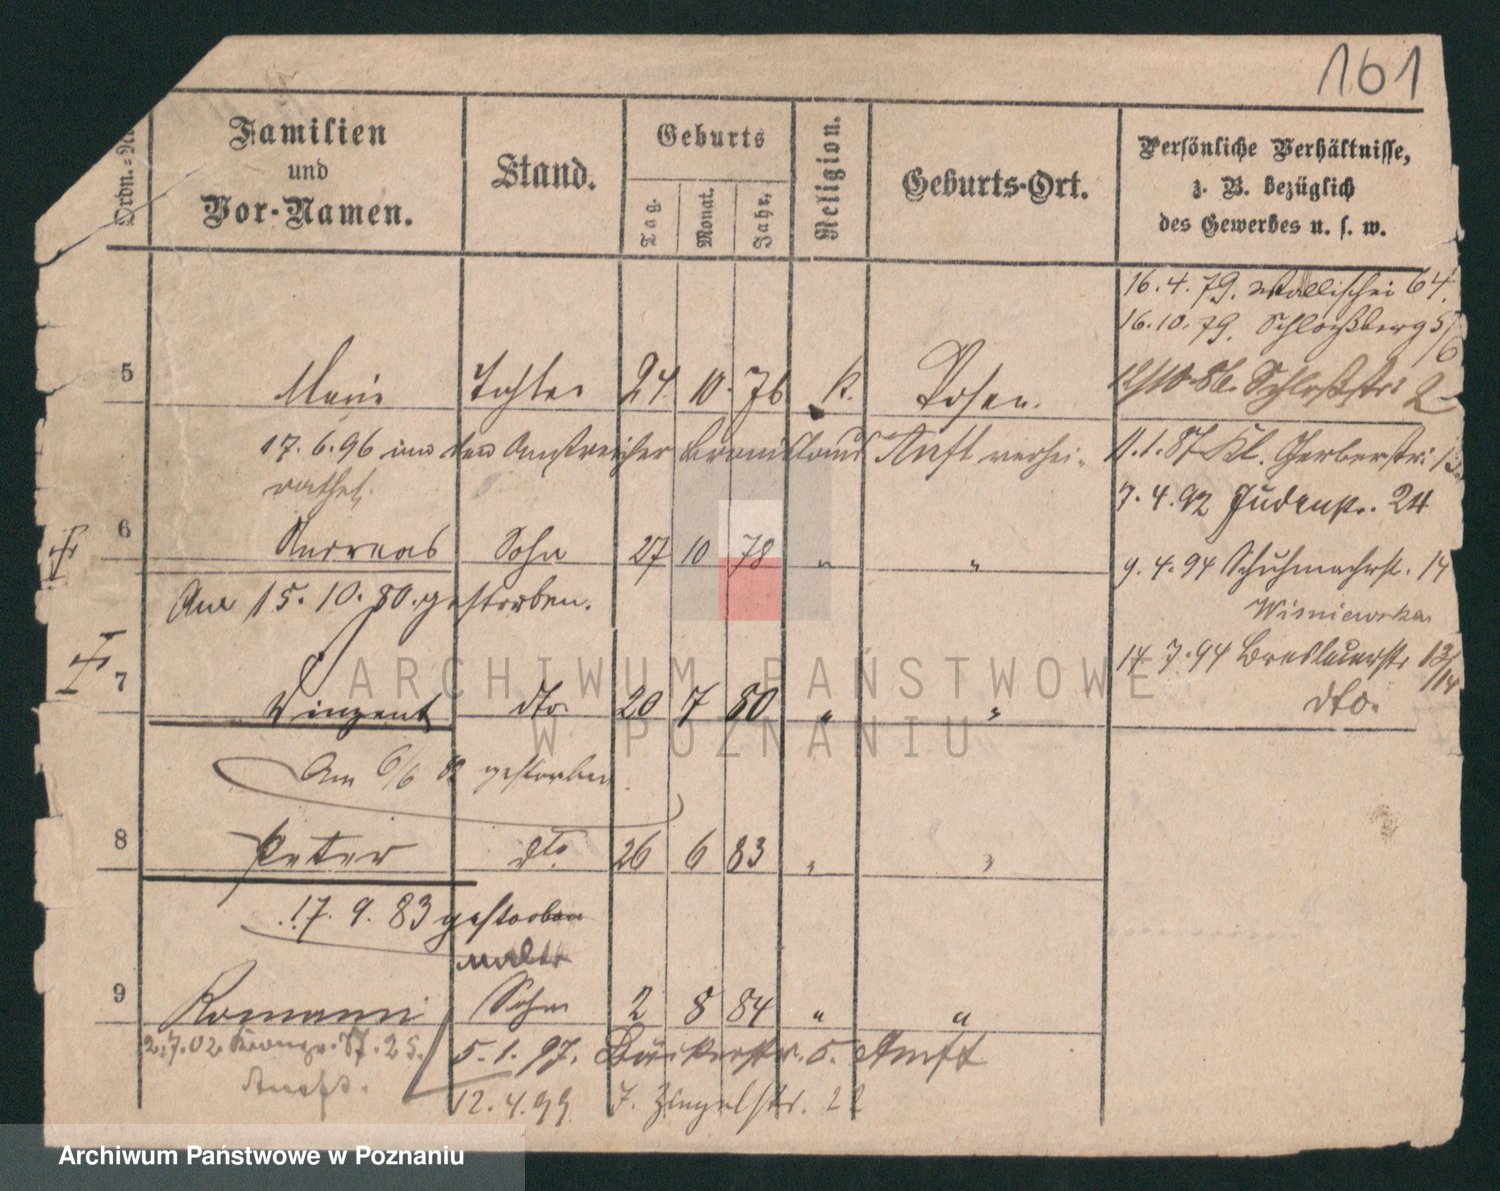 161
Ordn.=Nr.
Familien
und
Vor-Namen.
Stand.
Geburts
Tag.
Monat.
Jahr.
Religion.
Geburts-Ort.
Persönliche Verhältnisse,
z. B. bezüglich
des Gewerbes u. s. w.
16.4.79. Wallischei 64.
16.10.79. Schloßberg 5/6
5 Marie Tochter 24. 10. 76 K. Posen.
12/10.86. Schloßstr. 2
17.6.96 an den Anstreicher Bronislaus Anft verhei-
rathet.
11.1.87 Kl. Gerberstr.
7.4.92 Judenstr. 24
6 Andreas Sohn 27 10 78 " "
9.4.94 Schuhmacherst. 14
Wisniewska
Am 15.10.80. gestorben.
14.7.94 Breslauerstr 13/14
dto.
7 Vinzent dto 20 7 80 " "
Am 6/6 82 gestorben
8 Peter dto 26 6 83 " "
17. 9. 83 gestorben
9 Romann Sohn 2 8 84 " "
2.7.02 25.
Anft.
5.1.97. Bäckerstr. 5. Anft
12.4.99 Ziegelstr. 22
ARCHIWUM PAŃSTWOWE
W POZNANIU
Archiwum Państwowe w Poznaniu